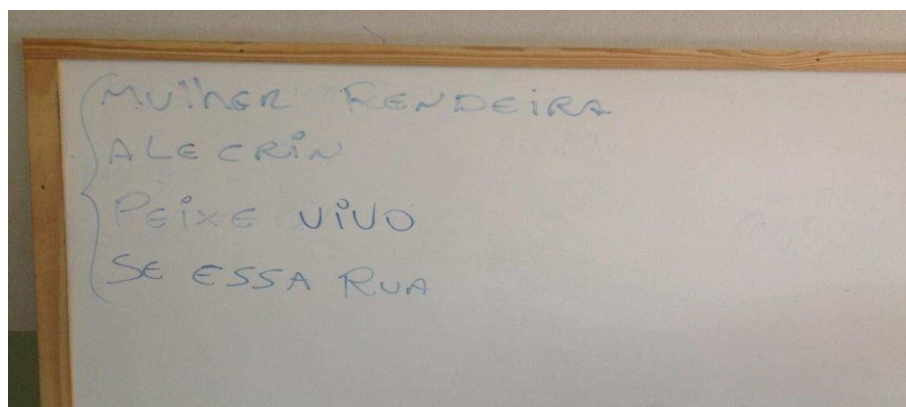 MUlhER RENDEiRA
ALECRiN
PEiXE ViVO
SE ESSA RUA